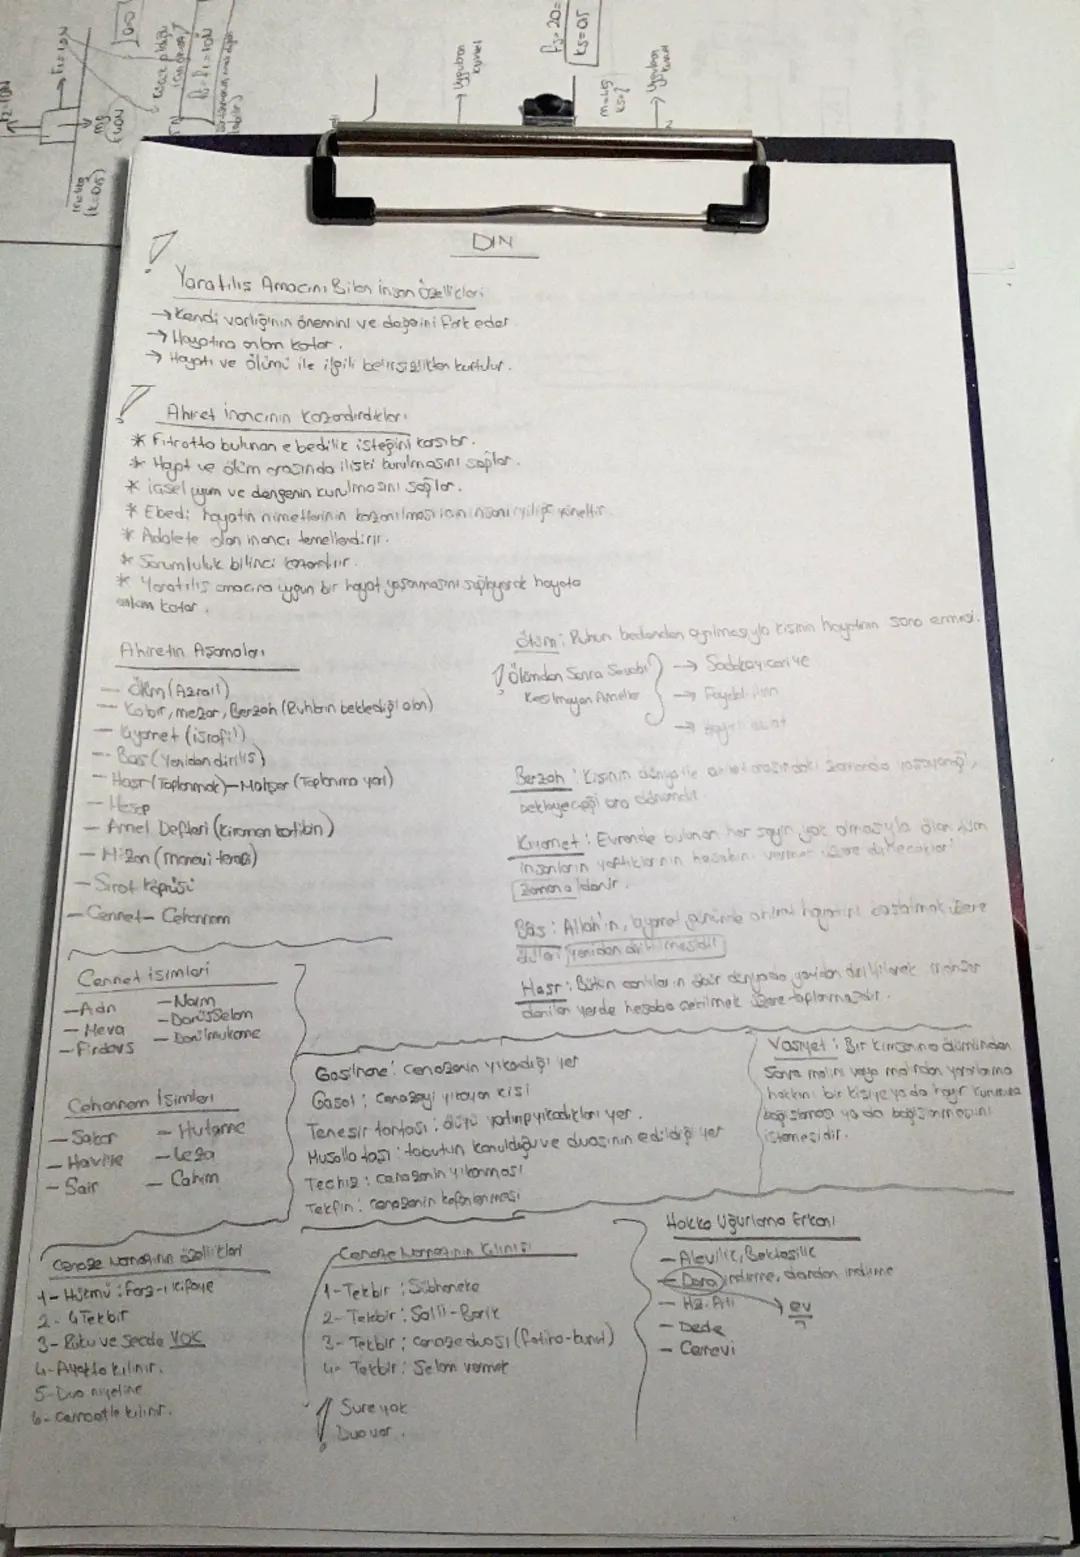 DİN
Yaratılış Amacını Bilen İnsan Özellikleri
→ Kendi varlığının önemini ve değerini fark eder.
→ Hayatına anlam katar.
→ Hayatı ve ölümü ile ilgili belirsizlikten kurtulur.
Ahiret İnancının Kazandırdıkları
* Fıtratta bulunan ebedilik isteğini karşılar.
* Hayat ve ölüm arasında ilişki kurulmasını sağlar.
* İçsel uyum ve dengenin kurulmasını sağlar.
* Ebedi hayatın nimetlerinin kazanılması için insanı iyiliğe yöneltir.
* Adalete olan inancı temellendirir.
* Sorumluluk bilinci kazandırır.
* Yaratılış amacına uygun bir hayat yaşanmasını sağlayarak hayata
anlam katar.
Ahiretin Aşamaları
— Ölüm (Azrail)
— Kabir, mezar, Berzah (Ruhların beklediği alan)
— Kıyamet (İsrafil)
— Bas (Yeniden diriliş)
— Haşr (Toplanmak) — Mahşer (Toplanma yeri)
— Hesap
— Amel Defteri (Kiramen katibin)
— Mizan (manevi terazi)
— Sırat Köprüsü
— Cennet — Cehennem
Ölüm: Ruhun bedenden ayrılmasıyla kişinin hayatının sona ermesi.
! Ölümden Sonra Sevabı
Kesilmeyen Ameller
→ Sadakayı cariye
→ Faydalı ilim
→ Hayırlı evlat
Berzah: Kişinin dünya ile ahiret arasındaki zamanda yaşayacağı,
bekleyeceği ara dönemdir.
Kıyamet: Evrende bulunan her şeyin yok olmasıyla ölen tüm
insanların yaptıklarının hesabını vermek üzere dirilecekleri
zamana denir.
Bâs: Allah'ın, kıyamet gününde ahiret hayatını başlatmak üzere
ölüleri yeniden diriltmesidir
Haşr: Bütün canlıların öbür dünyada yeniden diriltilerek mahşer
denilen yerde hesaba çekilmek üzere toplanmasıdır.
Cennet isimleri
— Adn
— Meva
— Firdevs
— Naim
— Darüsselam
— Darülmukame
Cehennem İsimleri
— Sakar
— Haviye
— Sair
— Hutame
— Leza
— Cahim
Gasilhane: cenazenin yıkandığı yer
Gasal: Cenazeyi yıkayan kişi
Teneşir tahtası: ölüyü yatırıp yıkadıkları yer.
Musalla taşı: tabutun konulduğu ve duasının edildiği yer
Techiz: cenazenin yıkanması
Tekfin: cenazenin kefenlenmesi
Vasiyet: Bir kimsenin ölümünden
sonra malını veya maldan yararlanma
hakkını bir kişiye ya da hayır kurumuna
bağışlaması ya da bağışlanmasını
istemesidir.
Cenaze Namazının özellikleri
1- Hükmü: Farz-ı kifaye
2- 4 Tekbir
3- Rüku ve Secde YOK
4- Ayakta kılınır.
5- Dua niyetine
6- Cemaatle kılınır.
Cenaze Namazının Kılınışı
1- Tekbir: Sübhaneke
2- Tekbir: Salli-Barik
3- Tekbir: cenaze duası (fatiha-kunut)
4- Tekbir: Selam vermek
! Sure yok
Dua var.
Hakka Uğurlama Erkanı
— Alevilik, Bektaşilik
— Dara indirme, dardan indirme
— Hz. Ali
→ ev
— Dede
— Cemevi